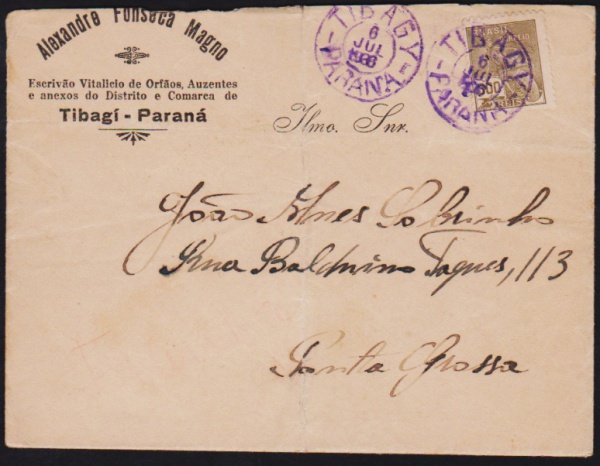 Alexandre Fonseca Magno
Escrivão Vitalicio de Orfãos, Auzentes
e anexos do Distrito e Comarca de
Tibagí - Paraná
TIBAGY
6
JUL
PARANÁ
TIBAGY
6
JUL
PARANÁ
BRASIL
CORREIO
600
Ilmo. Snr.
João Sobrinho
Rua Balduino Taques, 113
Ponta Grossa